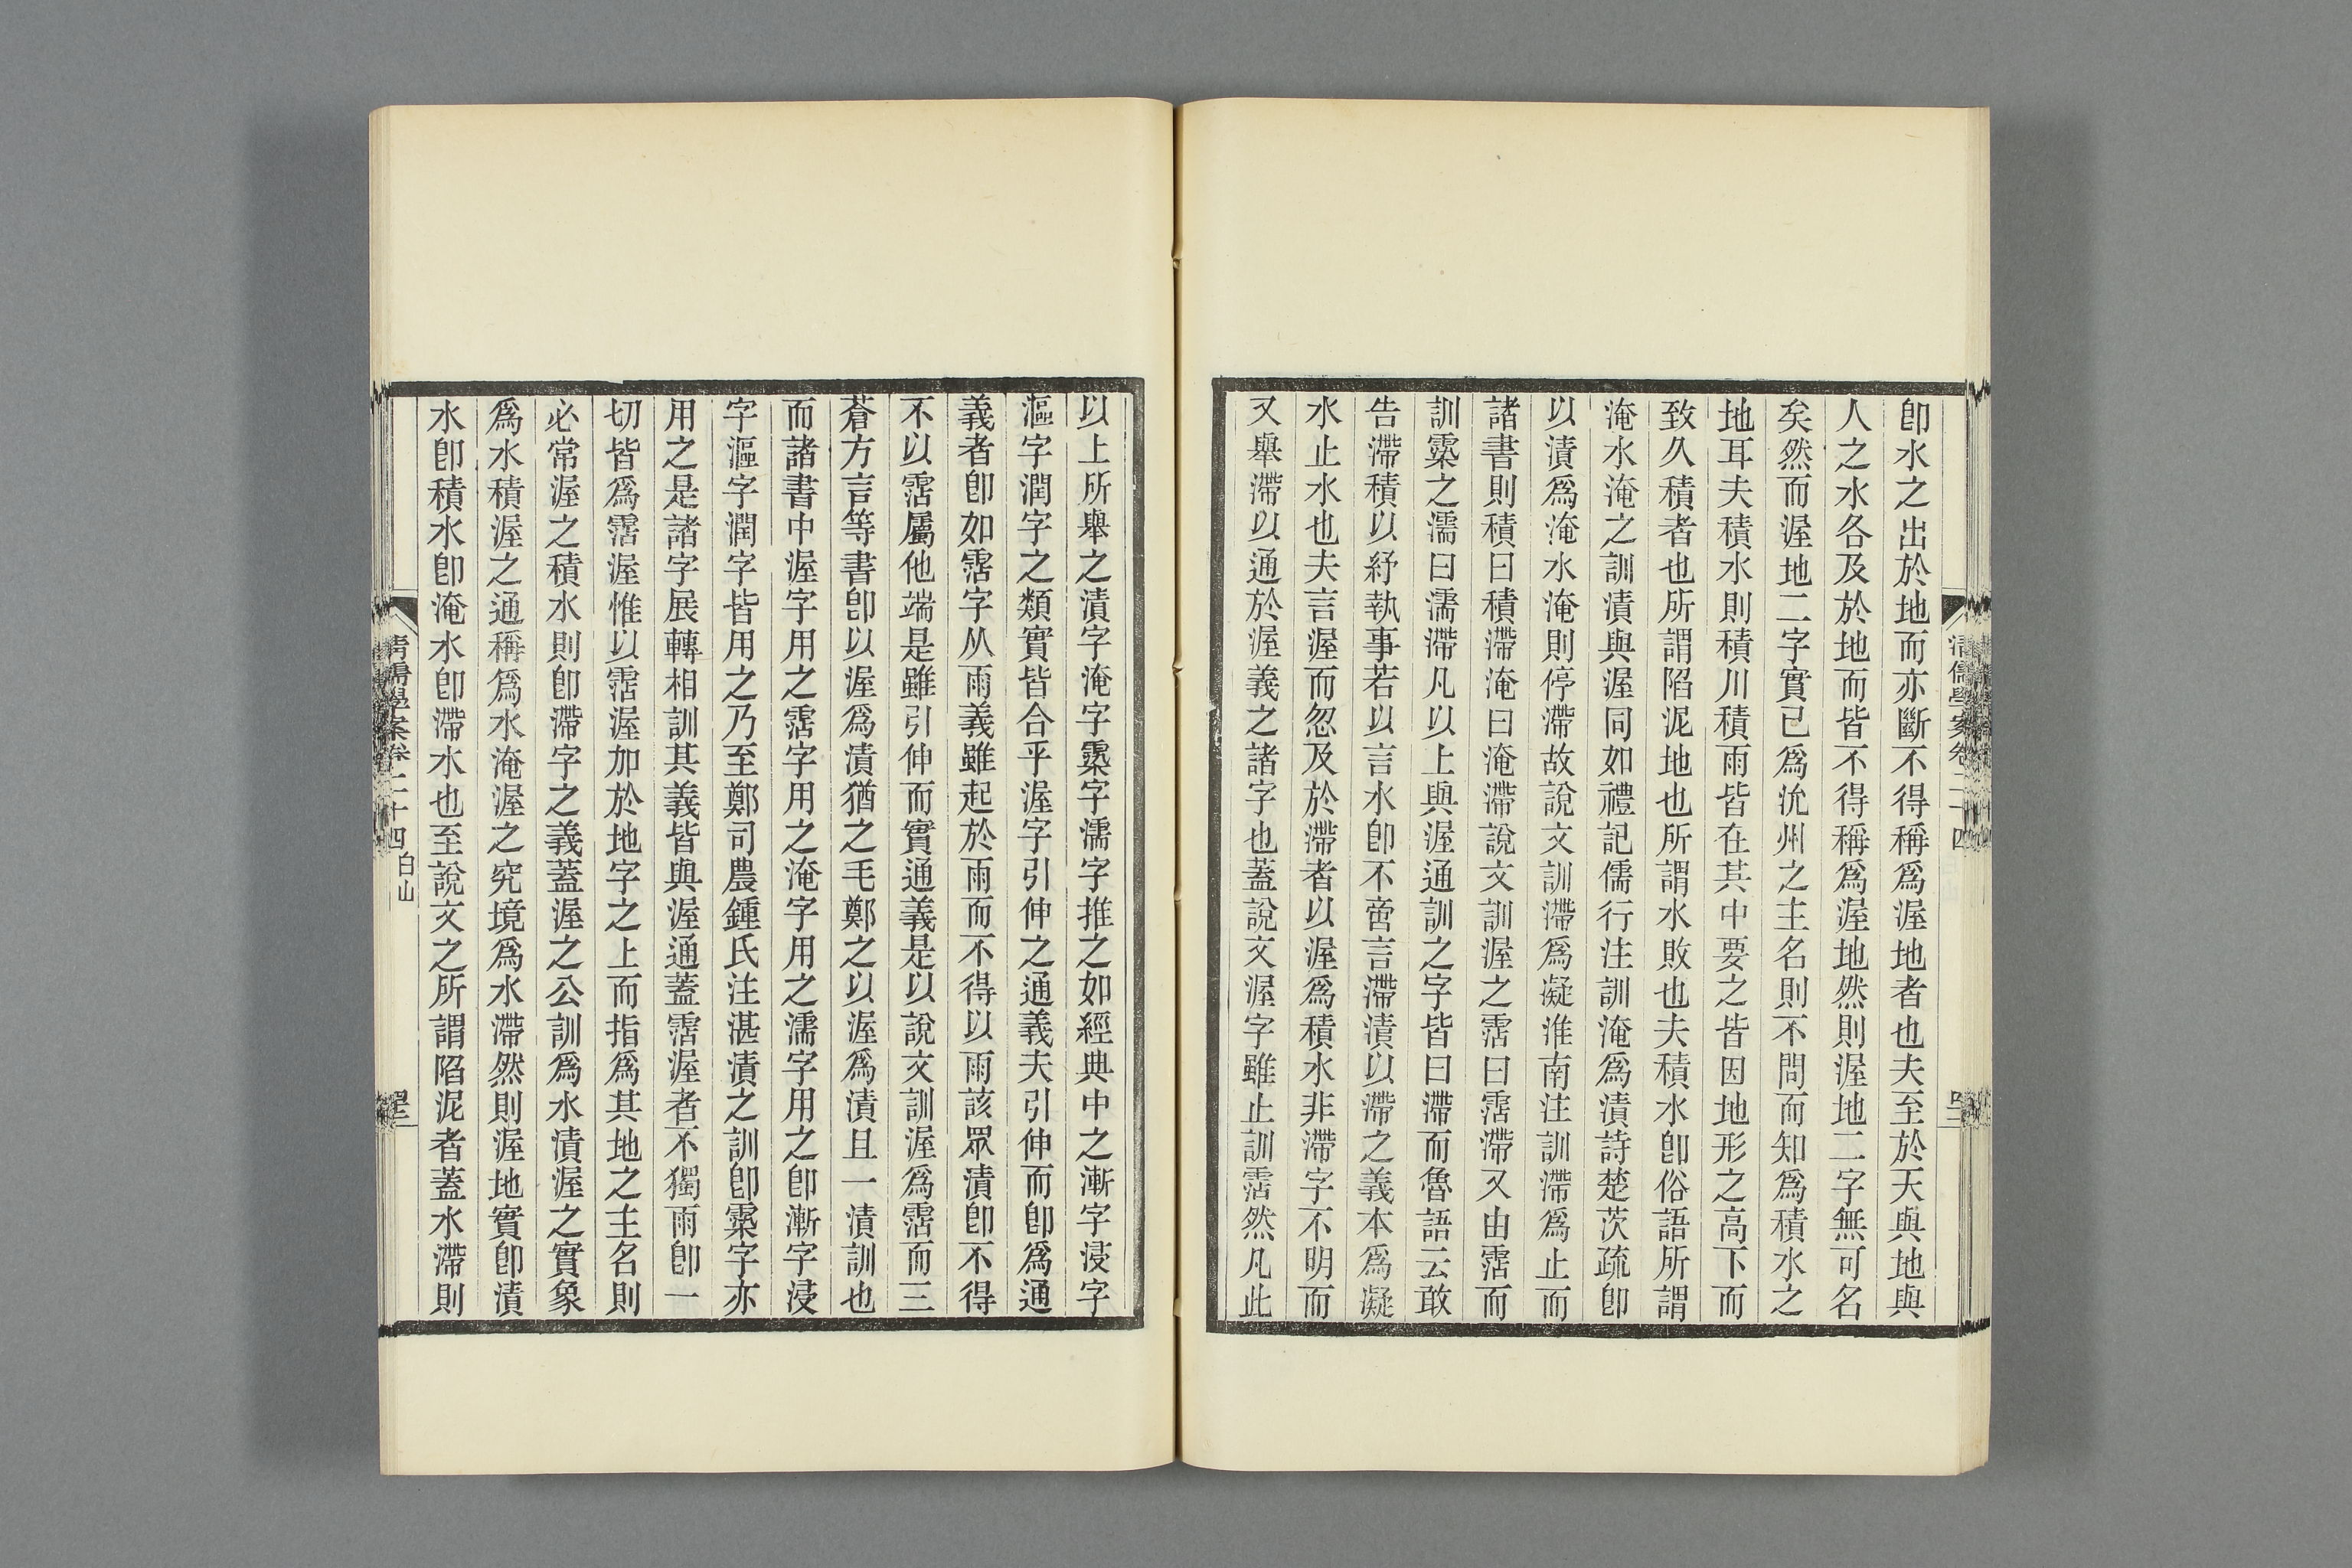 卽水之出於地而亦斷不得稱爲渥地者也夫至於天與地與
人之水各及於地而皆不得稱爲渥地然則渥地二字無可名
矣然而渥地二字實已爲沇州之主名則不問而知爲積水之
地耳夫積水則積川積雨皆在其中要之皆因地形之高下而
致久積者也所謂陷泥地也所謂水敗也夫積水卽俗語所謂
淹水淹之訓漬與渥同如禮記儒行注訓淹爲漬詩楚茨疏卽
以漬爲淹水淹則停滯故說文訓滯爲凝淮南注訓滯爲止而
諸書則積曰積滯淹曰淹滯說文訓渥之霑曰霑滯又由霑而
訓霂之濡曰濡滯凡以上與渥通訓之字皆曰滯而魯語云敢
告滯積以紓執事若以言水卽不啻言滯漬以滯之義本爲凝
水止水也夫言渥而忽及於滯者以渥爲積水非滯字不明而
又舉滯以通於渥義之諸字也蓋說文渥字雖止訓霑然凡此
以上所舉之漬字淹字霂字濡字推之如經典中之漸字浸字
漚字潤字之類實皆合乎渥字引伸之通義夫引伸而卽爲通
義者卽如霑字从雨義雖起於雨而不得以雨該眾漬卽不得
不以霑屬他端是雖引伸而實通義是以說文訓渥爲霑而三
蒼方言等書卽以渥爲漬猶之毛鄭之以渥爲漬且一漬訓也
而諸書中渥字用之霑字用之淹字用之濡字用之卽漸字浸
字漚字潤字皆用之乃至鄭司農鍾氏注湛漬之訓卽霂字亦
用之是諸字展轉相訓其義皆與渥通蓋霑渥者不獨雨卽一
切皆爲霑渥惟以霑渥加於地字之上而指爲其地之主名則
必常渥之積水則卽滯字之義蓋渥之公訓爲水漬渥之實象
爲水積渥之通稱爲水淹渥之究境爲水滯然則渥地實卽漬
水卽積水卽淹水卽滯水也至說文之所謂陷泥者蓋水滯則
清儒學案卷二十四 白山